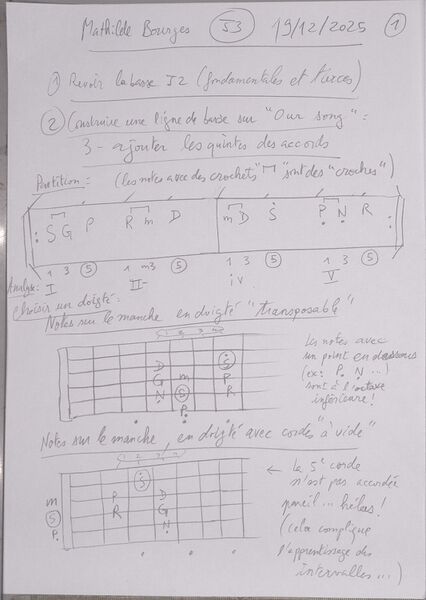 Mathilde Bourges J3 19/12/2025 1
① Revoir la basse J2 (fondamentales et tierces)
② Construire une ligne de basse sur "Our song" :
3 - ajouter les quintes des accords
Partition : (les notes avec des crochets "⊓" sont des "croches")
S G P R m D m D S P N R
1 3 ⑤ 1 m3 ⑤ 1 3 ⑤ 1 3 ⑤
Analyse : I II- IV V
Choisir un doigté :
Notes sur le manche en doigté "transposable"
1 2 3 4
D S
G m P
N S R
P
Les notes avec
un point en dessous
(ex : P. N ...)
sont à l'octave
inférieure !
Notes sur le manche, en doigté avec cordes "à vide"
1 2 3 4
S
m P D
S R G
P N
← la 5e corde
n'est pas accordée
pareil ... hélas !
(cela complique
l'apprentissage des
intervalles ...)